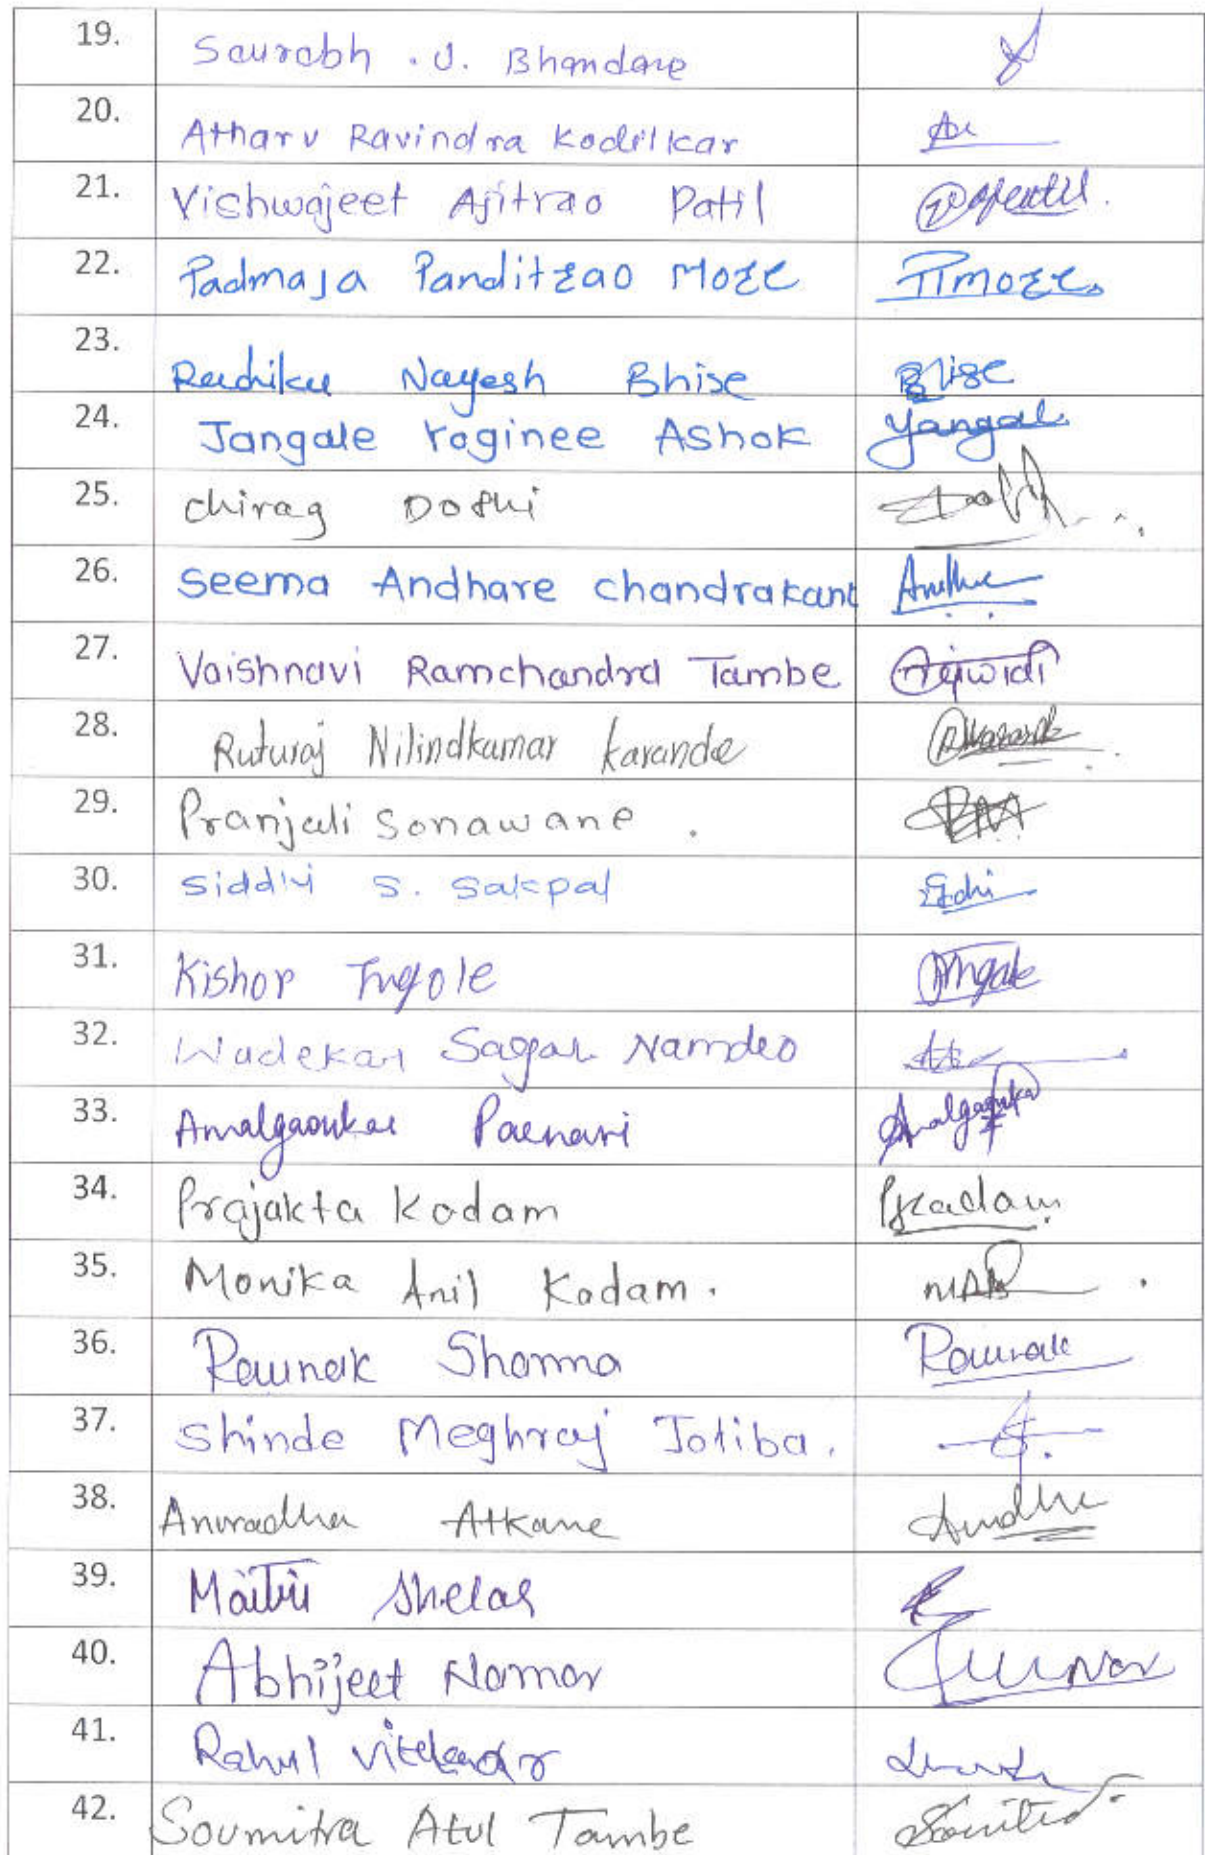 19. Saurabh . U. Bhandare
20. Atharv Ravindra Kodilkar
21. Vishwajeet Ajitrao Patil
22. Padmaja Panditrao More PPmore.
23. Radhika Nayesh Bhise Bhise
24. Jangale Yoginee Ashok Jangale
25. Chirag Doshi
26. Seema Andhare chandrakant
27. Vaishnavi Ramchandra Tambe
28. Ruturaj Nilindkumar Karande
29. Pranjali Sonawane .
30. Siddhi S. Sakpal
31. Kishor Ingole
32. Wadekar Sagar Namdeo
33. Amalgaonkar
34. Prajakta Kadam PKadam
35. Monika Anil Kadam.
36. Raunak Sharma Raunak
37. Shinde Meghraj Jotiba.
38. Anuradha Atkane
39. Maitri Shelar
40. Abhijeet Namar
41. Rahul
42. Soumitra Atul Tambe